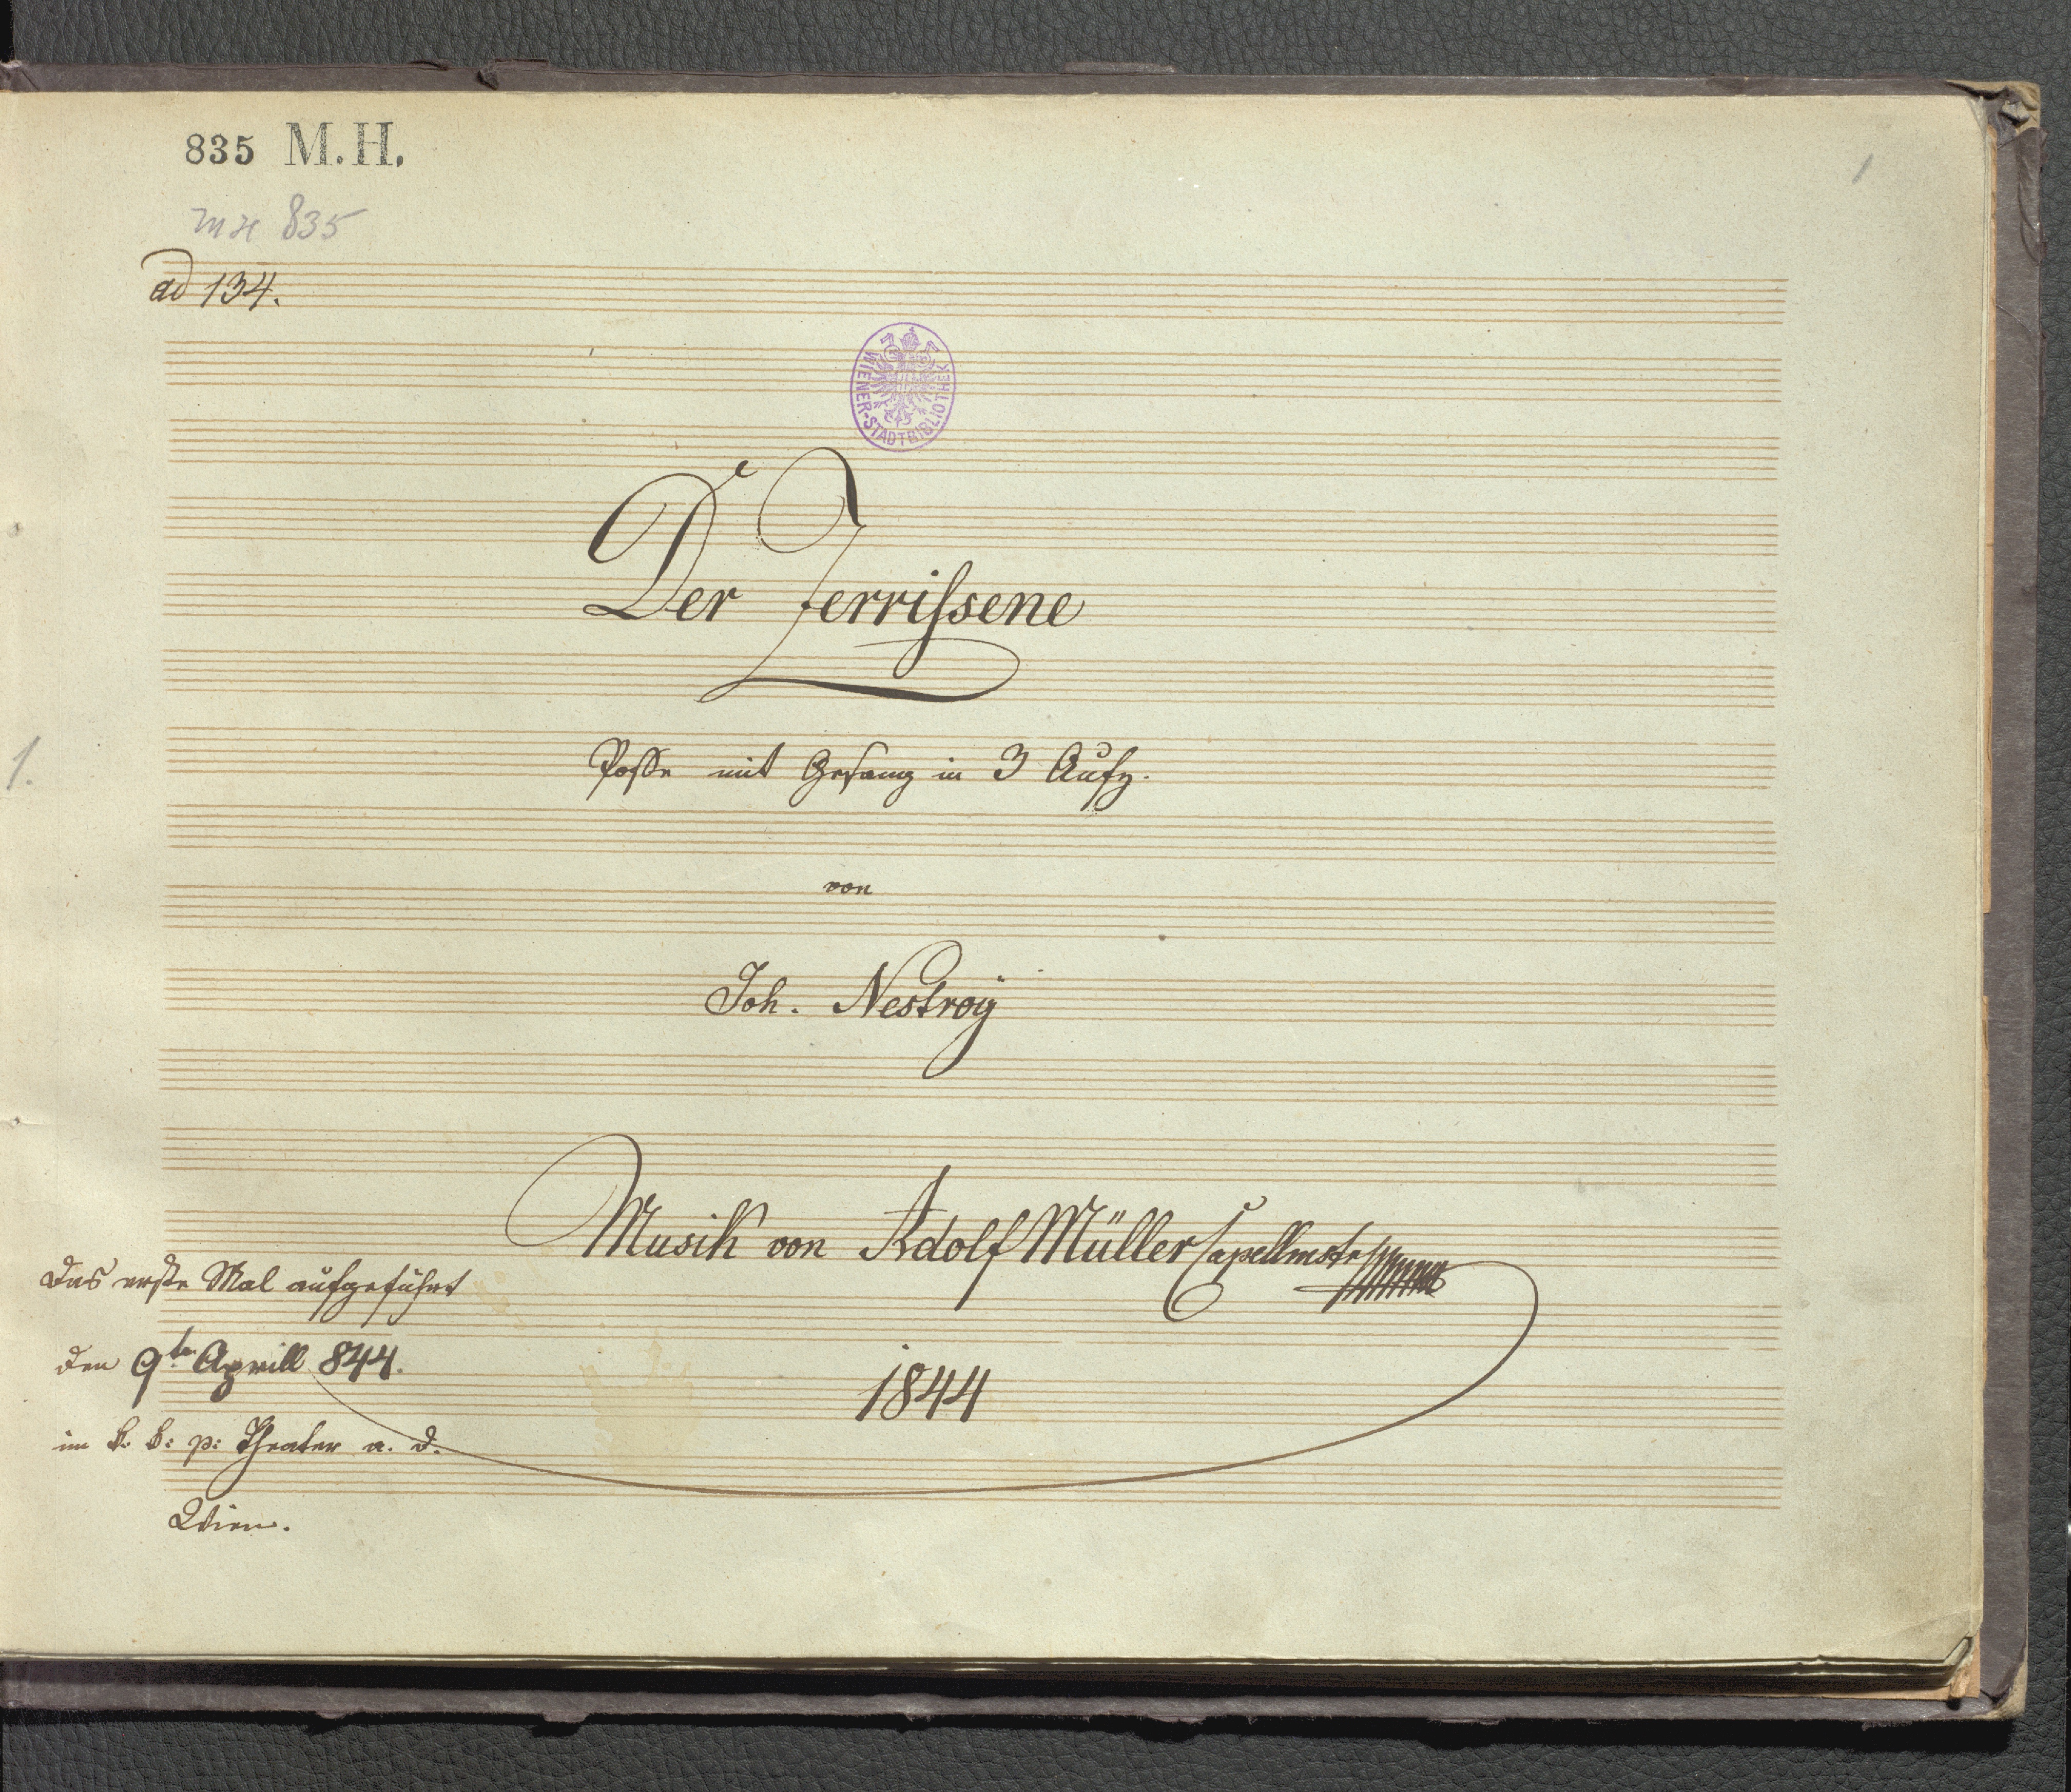 835 M. H.
MH 835
1
ad 134.
WIENER-STADTBIBLIOTHEK
Der Zerrissene
Posse mit Gesang in 3 Aufz.
1.
von
Joh. Nestroÿ
Musik von Adolf Müller Capellmstr
Das erste Mal aufgeführt
den 9ten Aprill 844.
1844
im k. k: p: Theater a. d.
Wien.